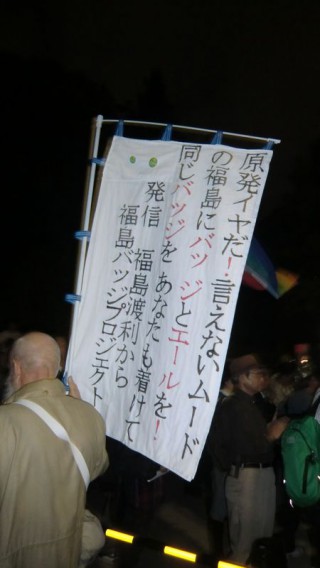 原発イヤだ！言えないムード
の福島にバッジとエールを！
同じバッジをあなたも着けて
発信 福島渡利から
福島バッジプロジェクト